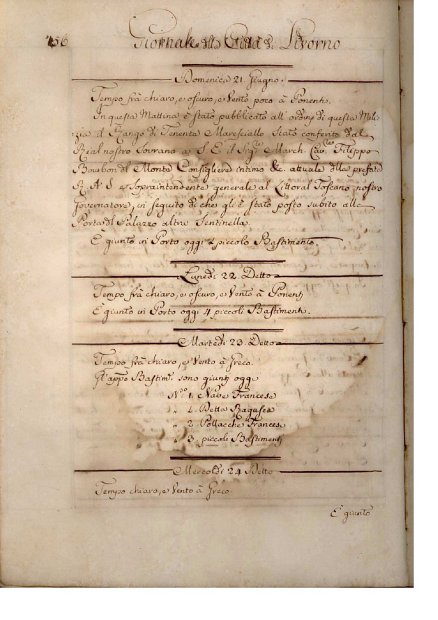 156 Giornale della Città di Livorno
Domenica 21. Giugno.
Tempo frà chiaro, e oscuro, e Vento poco à Ponente.
In questa Mattina è stato pubblicato all' ordine di questa Mili-
zia il Rango di Tenente Maresciallo Stato conferito dal
Real nostro Sovrano a S. E. il Sigr. March. Cavre. Filippo
Bourbon del Monte Consigliere intimo & attuale della prefata
R. A. S. e Sopraintendente generale al Littoral Toscano nostro
Governatore, in seguito di che gli è stato posto subito alla
Porta del Palazzo altra Sentinella.
È giunto in Porto oggi piccolo Bastimento.
Lunedì 22. Detto
Tempo frà chiaro, e oscuro, e Vento à Ponente
È giunto in Porto oggi 4 piccoli Bastimenti.
Martedì 23. Detto
Tempo frà chiaro, e Vento à Greco.
Bastimti. sono giunti oggi
No. 1. Nave Francese
1. Detta Ragusea
2. Pollacche Francesi
3. piccoli Bastimenti
Mercoldì 24. Detto
Tempo chiaro, e Vento à Greco.
È giunto